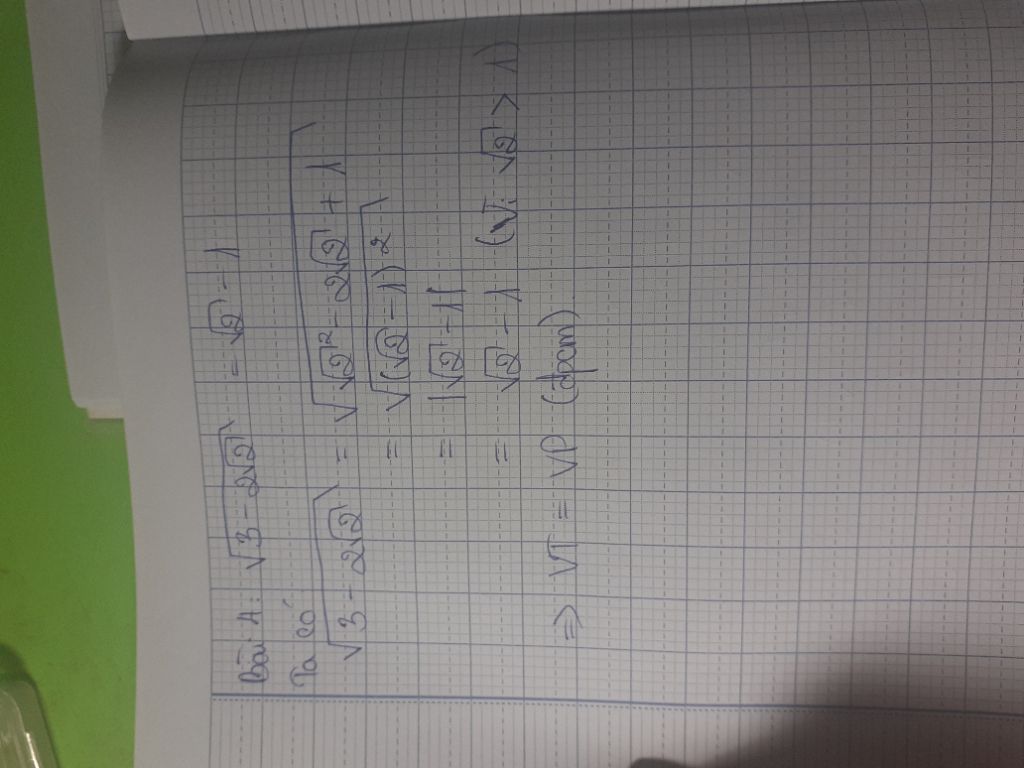 Bài 1: √3 - 2√2 = √2 - 1
Ta có
√3 - 2√2 = √√2² - 2√2 + 1
= √(√2 - 1)²
= |√2 - 1|
= √2 - 1 (Vì √2 > 1)
=> VT = VP (đpcm)